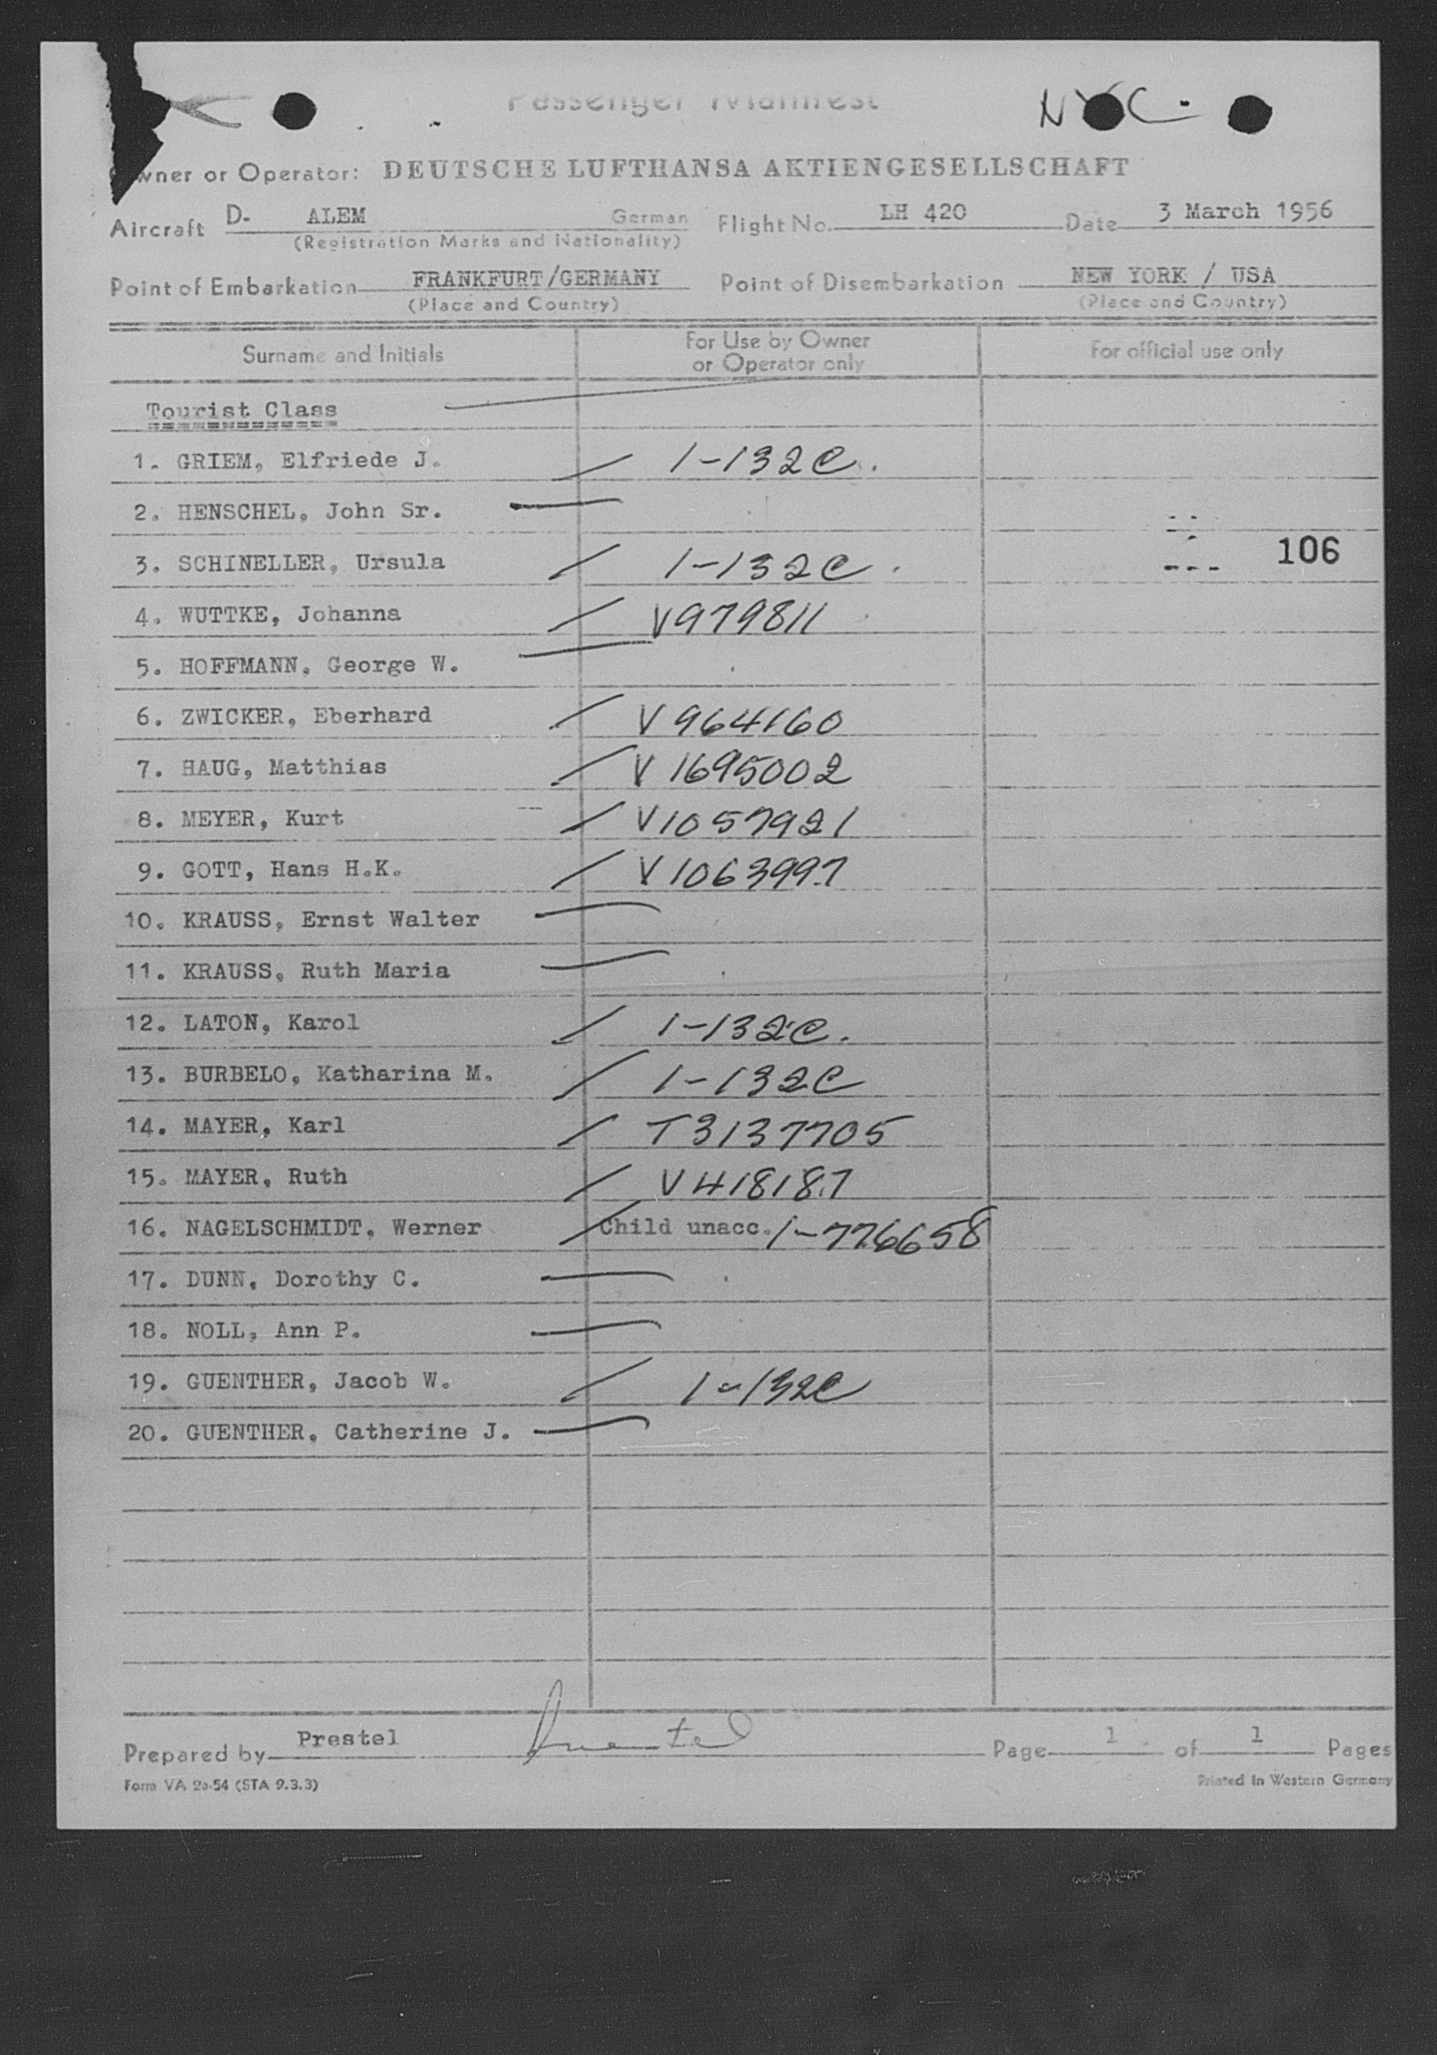 Passenger Manifest
NYC.
Owner or Operator: DEUTSCHE LUFTHANSA AKTIENGESELLSCHAFT
Aircraft D- ALEM German Flight No. LH 420 Date 3 March 1956
(Registration Marks and Nationality)
Point of Embarkation FRANKFURT/GERMANY Point of Disembarkation NEW YORK / USA
(Place and Country) (Place and Country)
Surname and Initials For Use by Owner or Operator only For official use only
Tourist Class
1. GRIEM, Elfriede J. 1-132C.
2. HENSCHEL, John Sr.
106
3. SCHINELLER, Ursula 1-132C.
4. WUTTKE, Johanna V979811
5. HOFFMANN, George W.
6. ZWICKER, Eberhard V964160
7. HAUG, Matthias V1695002
8. MEYER, Kurt V1057921
9. GOTT, Hans H.K. V1063997
10. KRAUSS, Ernst Walter
11. KRAUSS, Ruth Maria
12. LATON, Karol 1-132C.
13. BURBELO, Katharina M. 1-132C
14. MAYER, Karl T3137705
15. MAYER, Ruth V418187
16. NAGELSCHMIDT, Werner Child unacc. 1-776658
17. DUNN, Dorothy C.
18. NOLL, Ann P.
19. GUENTHER, Jacob W. 1-132C
20. GUENTHER, Catherine J.
Prepared by Prestel Prestel Page 1 of 1 Pages
Form VA 2a-54 (STA 9.3.3) Printed in Western Germany